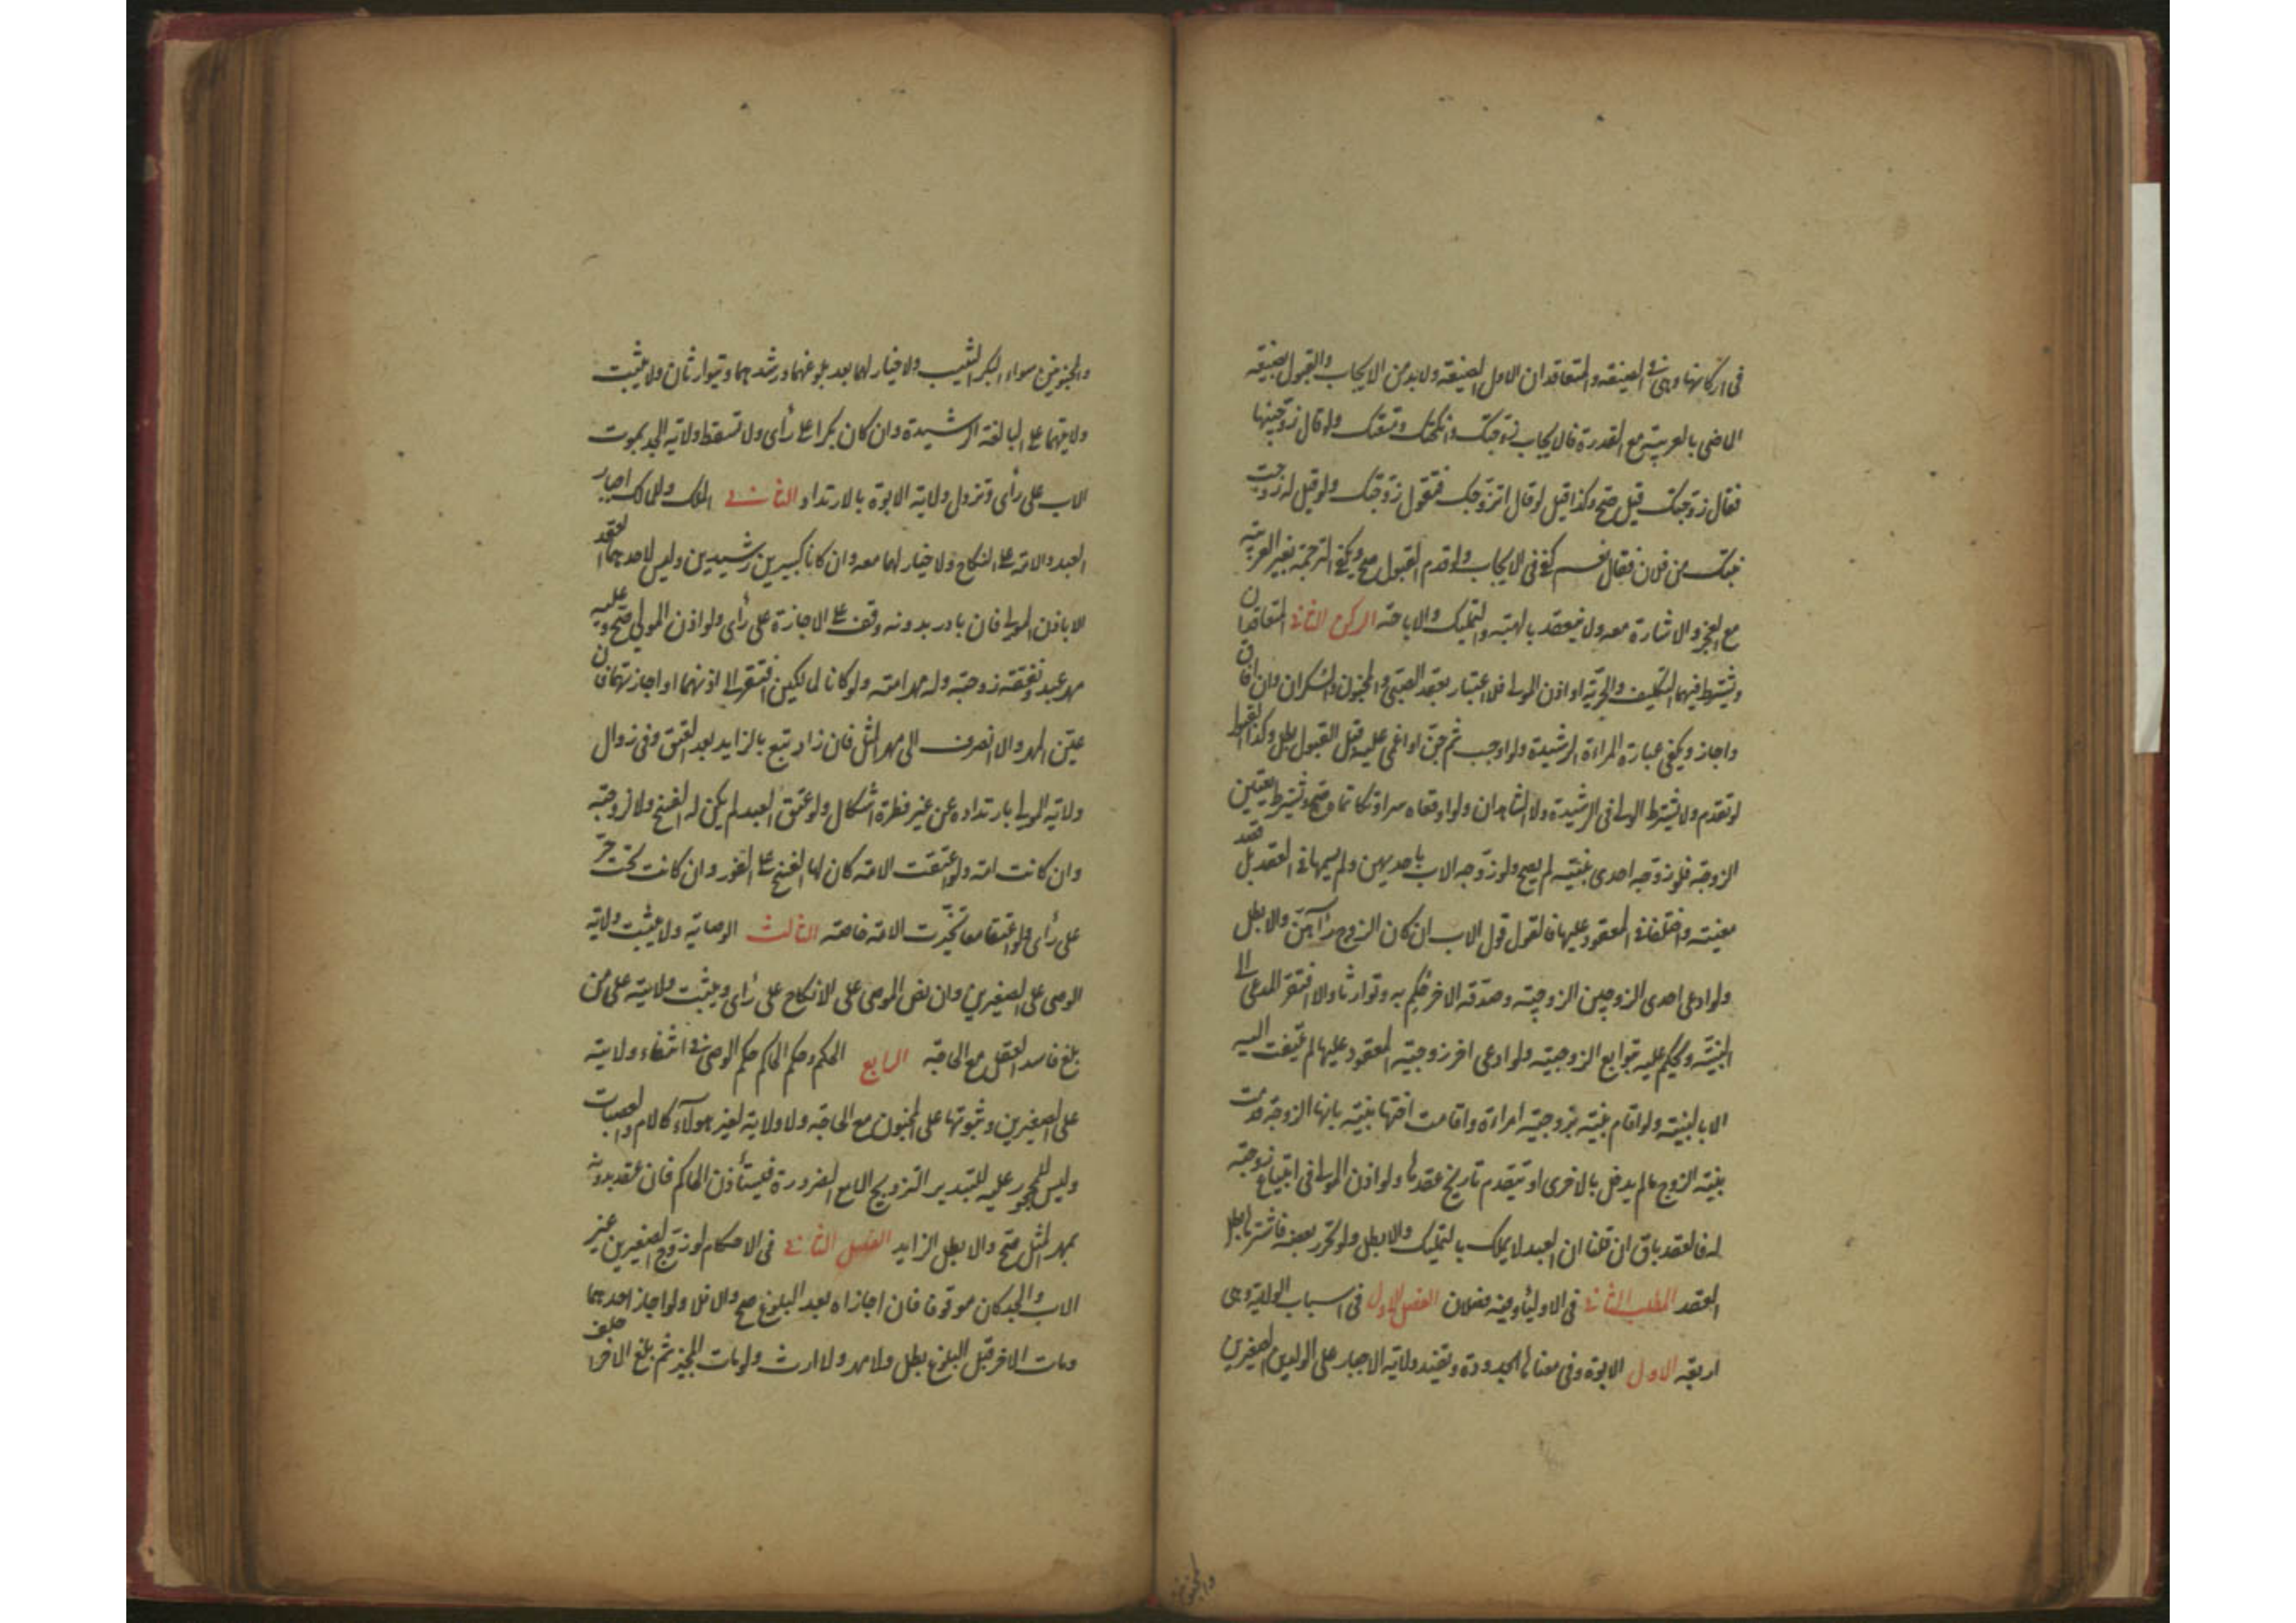 في اركانها وهي في الصيغة والمتعاقدان الاول الصيغة ولابد من الايجاب والقبول بصيغة
الماضي بالعربية مع القدرة فالايجاب زوجتك وانكحتك ومتعتك ولو قال زوجنيها
فقال زوجتك قيل صح وكذا قيل لو قال اتزوجك فتقول زوجتك ولو قيل له زوجت
بنتك من فلان فقال نعم كفى في الايجاب ولو قدم القبول صح ويكفي الترجمة بغير العربية
مع العجز والاشارة معه ولا ينعقد بالهبة والتمليك والاباحة الركن الثاني المتعاقدان
ويشترط فيهما التكليف والحرية او اذن المولى فلا اعتبار بعقد الصبي والمجنون والسكران وان افاق
واجاز ويكفي عبارة المراءة الرشيدة ولو اوجب ثم جن او اغمي عليه قبل القبول بطل وكذا القابل
لو تقدم ولا يشترط الولي في الرشيدة ولا الشاهدان ولو اوقعاه سرا وتكاتماه صح ويشترط تعيين
الزوجة فلو زوجه احدى بنتيه لم يصح ولو زوجه الاب باحديهن ولم يسمها في العقد بل قصد
معينة واختلفا في المعقود عليها فالقول قول الاب ان كان الزوج رآهن والا بطل
ولو ادعى احدى الزوجين الزوجية وصدقه الاخر حكم به وتوارثا والا افتقر المدعي الى
البينة ويحكم عليه بتوابع الزوجية ولو ادعى اخر زوجية المعقود عليها لم يلتفت اليه
الا بالبينة ولو اقام بينة بزوجية امراءة واقامت اختها بينة بانها الزوجة قدمت
بينة الزوج ما لم يدخل بالاخرى او يتقدم تاريخ عقدها ولو اذن المولى في ابتياع زوجته
له فالعقد باق ان قلنا ان العبد لا يملك بالتمليك والا بطل ولو تحرر بعضه فاشترها بطل
العقد المطلب الثاني في الاولياء وفيه فصلان الفصل الاول في اسباب الولاية وهي
اربعة الاول الابوة وفي معناها الجدودة ويفيد ولاية الاجبار على الولدين الصغيرين
والمجنونين سواء البكر الثيب ولا خيار لهما بعد بلوغهما ورشدهما ويتوارثان ولا يثبت
ولايتهما على البالغة الرشيدة وان كان بكرا على رأى ولا تسقط ولاية الجد بموت
الاب على رأى وتزول ولاية الابوة بالارتداد الثاني الملك وللمالك اجبار
العبد والامة على النكاح ولا خيار لهما معه وان كانا كبيرين رشيدين وليس لاحدهما العقد
الا باذن المولى فان بادر بدونه وقف على الاجازة على رأى ولو اذن المولى صح وعليه
مهر عبده ونفقة زوجته وله مهر امته ولو كانا لمالكين افتقر الى اذنهما او اجازتهما فان
عين المهر والا انصرف الى مهر المثل فان زاد تبع بالزايد بعد العتق وفي زوال
ولاية المولى بارتداده عن غير فطرة اشكال ولو عتق العبد لم يكن له الفسخ ولا لزوجته
وان كانت امة ولو اعتقت الامة كان لها الفسخ على الفور وان كانت تحت حر
على رأى ولو اعتقا معا تخيرت الامة خاصة الثالث الوصاية ولا يثبت ولاية
الوصي على الصغيرين وان نص الموصي على الانكاح على رأى ويثبت ولايته على من
بلغ فاسد العقل مع الحاجة الرابع الحكم وحكم الحاكم حكم الوصي في انتفاء ولايته
على الصغيرين وثبوتها على المجنون مع الحاجة ولا ولاية لغير هولآء كالام والعصبات
وليس للمحجور عليه للتبذير التزويج الا مع الضرورة فيستأذن الحاكم فان عقد بدونه
بمهر المثل صح والا بطل الزايد الفصل الثاني في الاحكام لو زوج الصغيرين غير
الاب والجد كان موقوفا فان اجازاه بعد البلوغ صح والا فلا ولو اجاز احدهما
ومات الاخر قبل البلوغ بطل ولا مهر ولا ارث ولو مات المجيز ثم بلغ الاخر حلف
والمجنونين